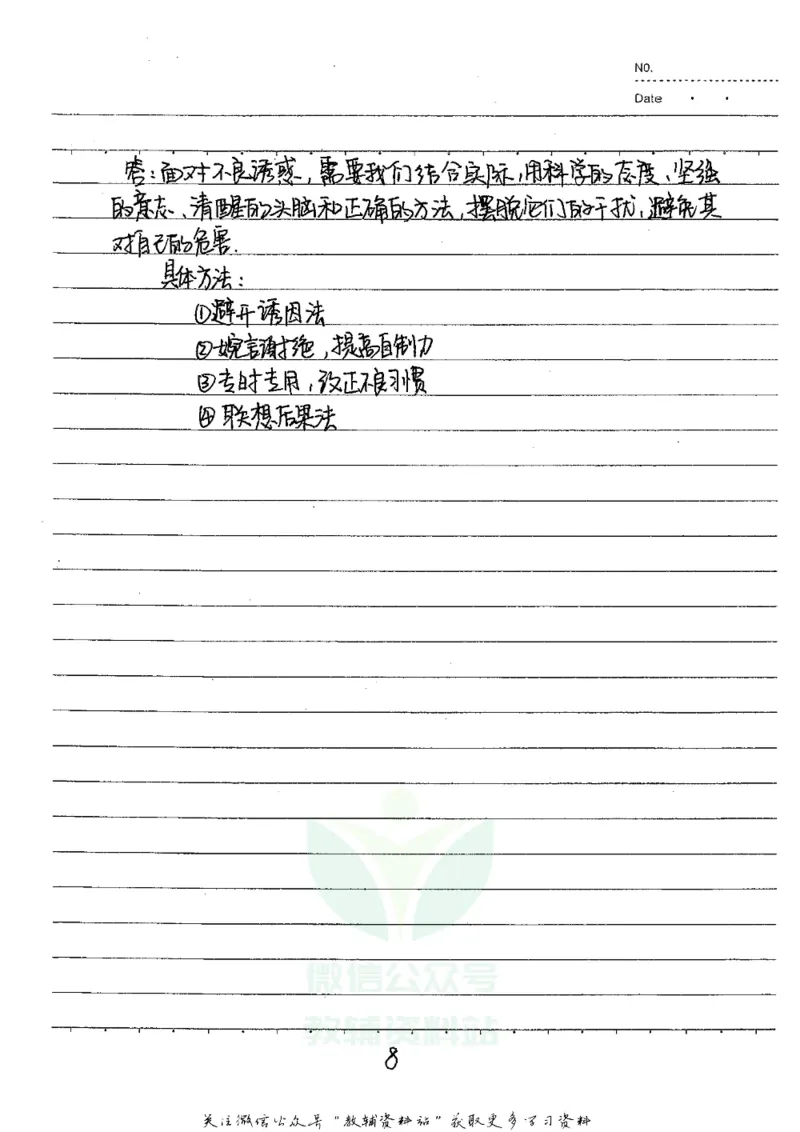 No.
Date
答：面对不良诱惑，需要我们结合实际，用科学的态度、坚强
的意志、清醒的头脑和正确的方法，摆脱它们的干扰，避免其
对自己的危害.
具体方法：
①避开诱因法
②婉言谢绝，提高自制力
③专时专用，改正不良习惯
④联想后果法
微信公众号
教辅资料站
8
关注微信公众号“教辅资料站”获取更多学习资料